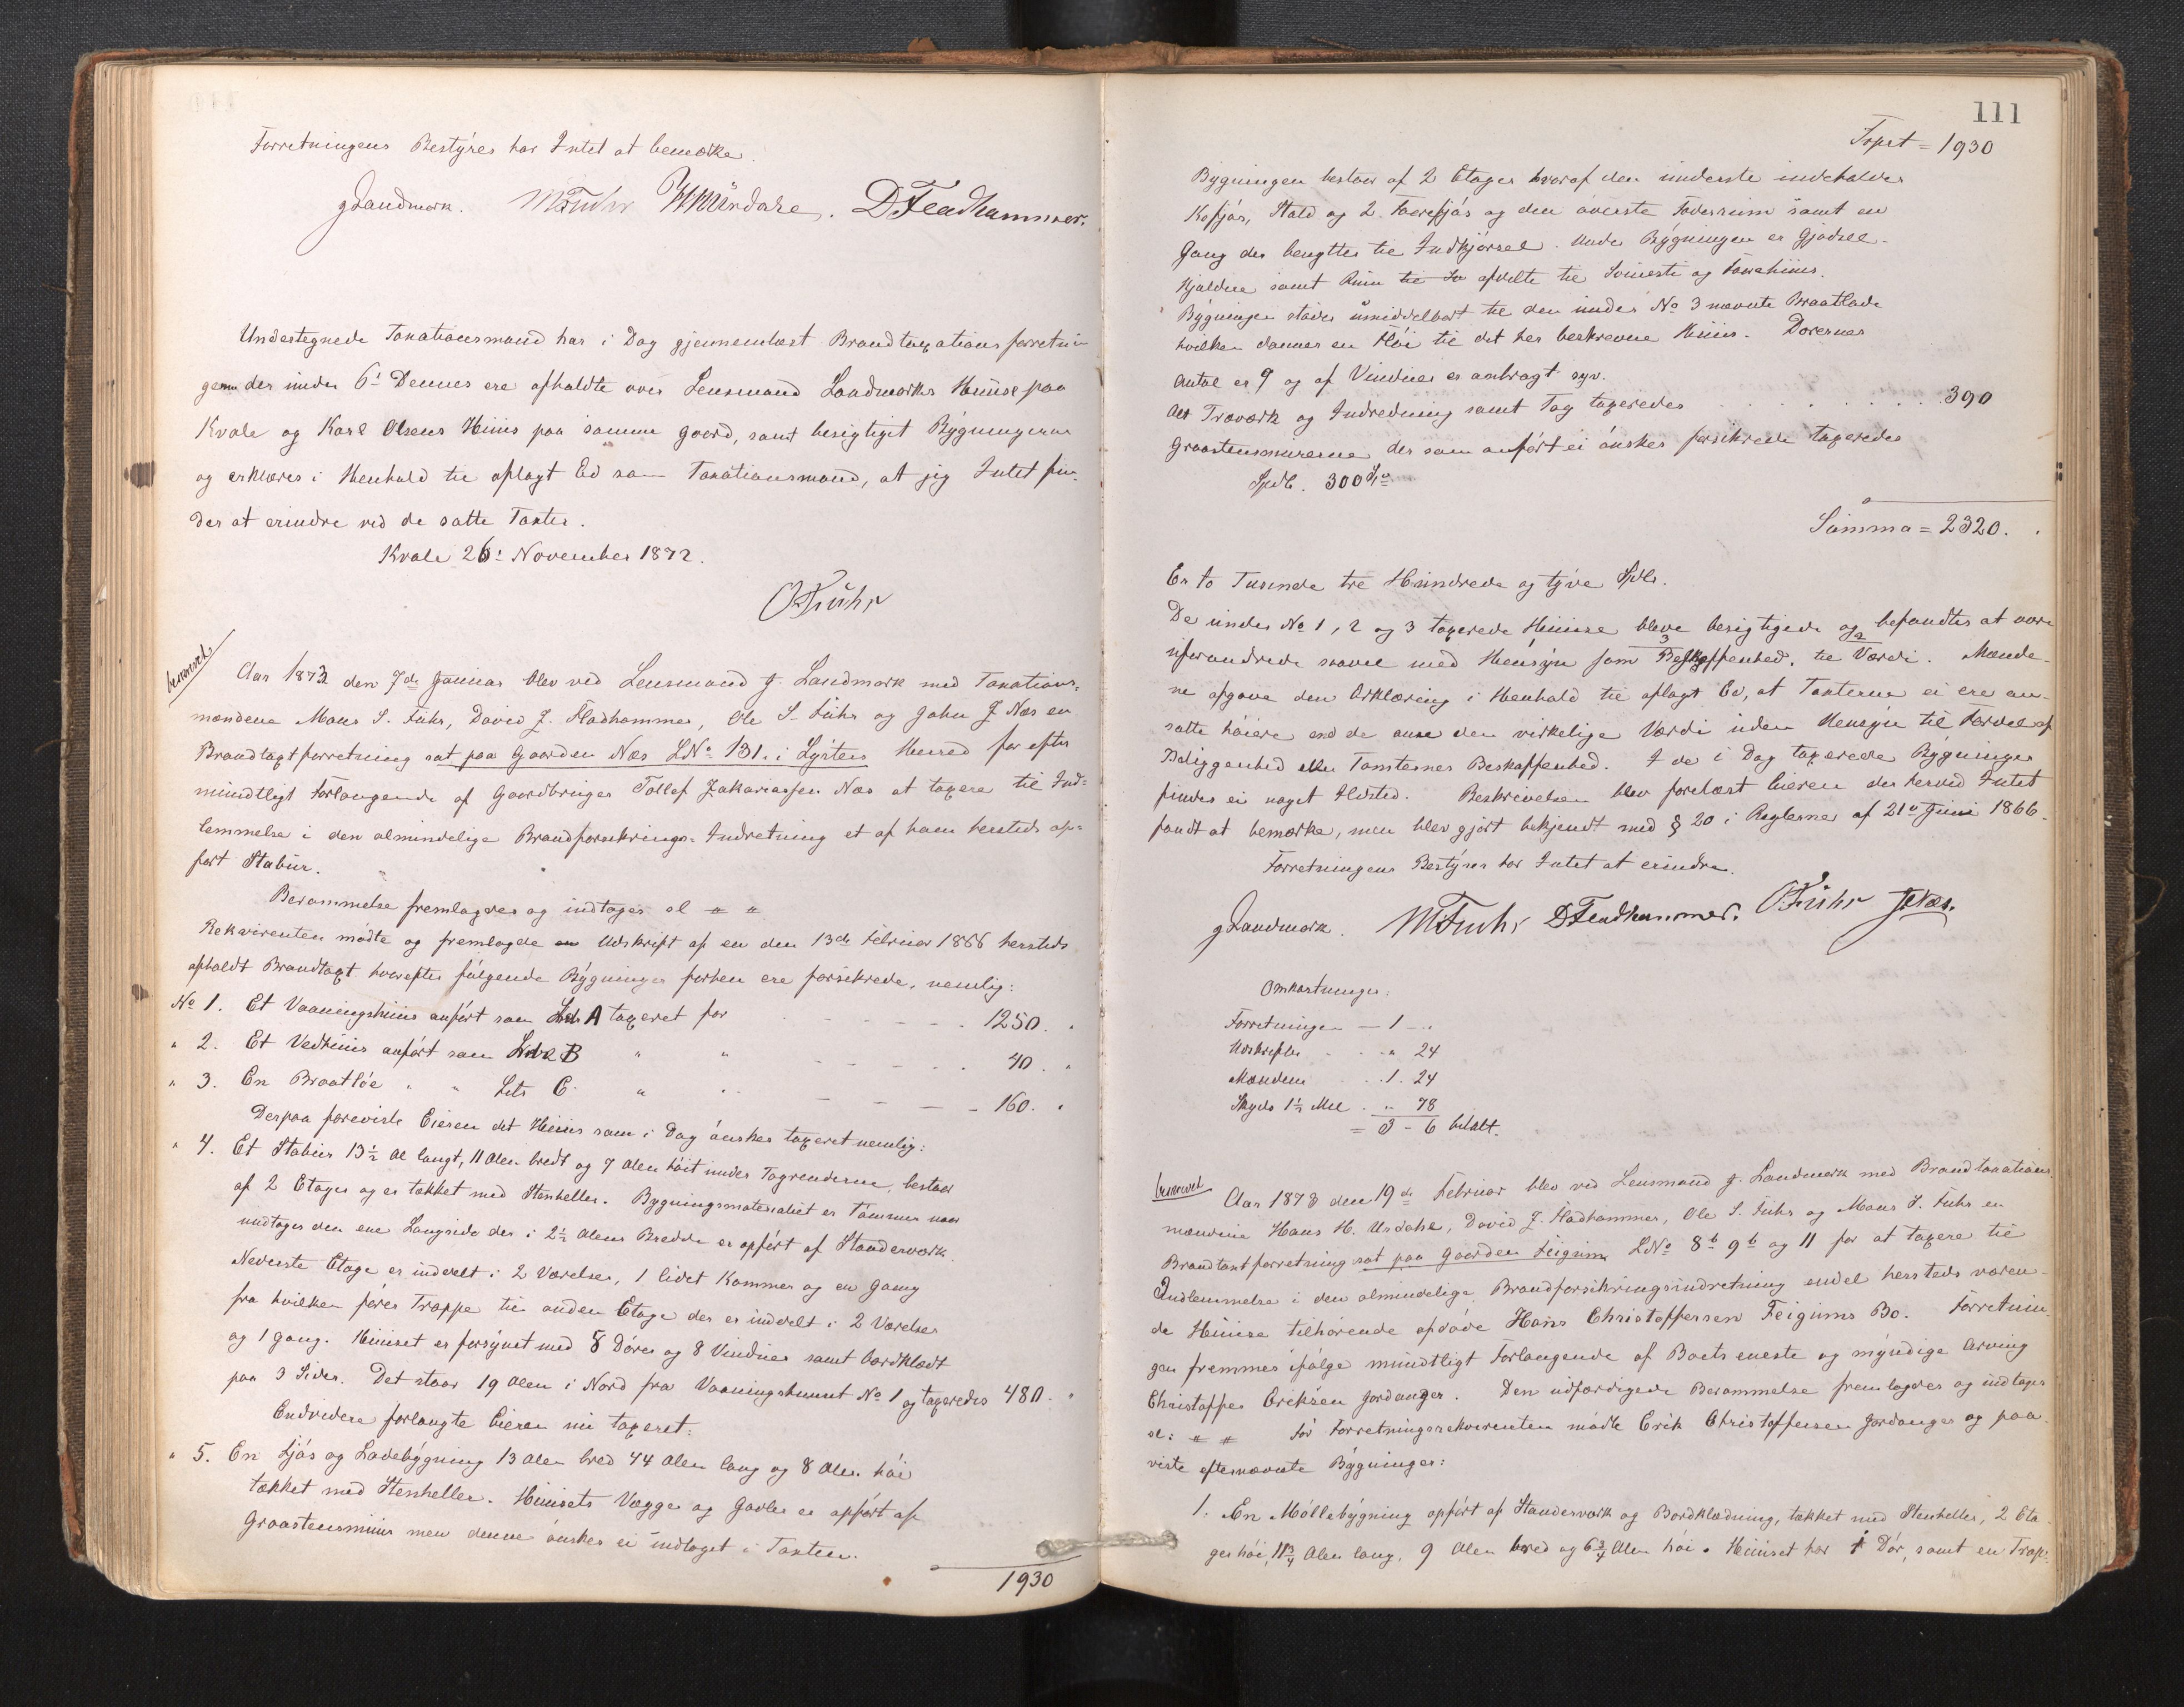 Forretningens Bestÿrer har Intet at bemærke.
JLandmark. MSFuhr HHUrdahl. DFladhammer.
Undertegnede Taxationsmand har i Dag gjennemlæst Brandtaxationsforretnin-
gerne der under 6te Dennes ere afholdte over Lensmand Landmarks Huuse paa
Kvale og Karl Olsens Huus paa samme Gaard, samt besigtiget Bygningerne
og erklæres i Henhold til aflagt Ed som Taxationsmand, at jeg Intet fin-
der at erindre ved de satte Taxter.
Kvale 26de November 1872.
OSFuhr
beskrevet
Aar 1873 den 7de Januar blev ved Lensmand J. Landmark med Taxations-
mændene Mons S. Fuhr, David J. Fladhammer, Ole S. Fuhr og John J Næs en
Brandtaxtforretning sat paa Gaarden Næs LNo 131. i Lÿster Herred for efter
mundtligt Forlangende af Gaardbruger Tollef Zakariassen Næs at taxere til Ind-
lemmelse i den almindelige Brandforsikrings-Indretning et af ham hersteds op-
ført Stabur.
Berammelse fremlagdes og indtages sl " "
Rekvirenten mødte og fremlagde en Udskrift af en den 13de Februar 1866 hersteds
afholdt Brandtaxt hvorefter følgende Bÿgninger forhen ere forsikrede, nemlig:
No 1. Et Vaaningshuus anført som Litr A taxeret for - - - - - - 1250. "
" 2. Et Vedhuus anført som Litr B " " - - - - - 40. "
" 3. En Braatløe " " Litr C " " - - - - 160. "
Derpaa foreviste Eieren det Huus som i Dag ønskes taxeret nemlig:
" 4. Et Stabur 13½ Al langt, 11 Alen bredt og 7 Alen høit under Tagrenderne, bestaar
af 2 Etager og er tækket med Stenheller. Bygningsmaterialiet er Tømmer naar
undtages den ene Langside der i 2½ Alens Bredde er opført af Standerværk.
Nederste Etage er inddelt i 2 Værelser, 1 lidet Kammer og en Gang
fra hvilken fører Trappe til anden Etage der er inddelt i 2 Værelser
og 1 Gang. Huuset er forsÿnet med 8 Døre og 8 Vinduer samt bordklædt
paa 3 Sider. Det staar 19 Alen i Nord fra Vaaningshuuset No 1 og taxeredes 480. "
Endvidere forlangte Eieren nu taxeret:
" 5. En Fjøs og Ladebÿgning 13 Alen bred 44 Alen lang og 8 Alen høi
tækket med Stenheller. Huusets Vægge og Gavler er opført af
Graastensmuur men denne ønskes ei indtaget i Taxten.
1930
111
Trspt = 1930
Bÿgningen bestaar af 2 Etager hvoraf den underste indeholder
Kofjøs, Stald og 2 Faarefjøs og den øverste Foderrum samt en
Gang der benyttes til Indkjørsel. Under Bÿgningen er Gjødsel-
kjælder samt Rum til So afdelte til Svinesti og Faarehuus.
Bÿgningen støder umiddelbart til den under No 3 nævnte Braatlade
hvilken danner en Fløi til det her beskrevne Huus. Dørenes
Antal er 9 og af Vinduer er anbragt syv.
Alt Træværk og Indredning samt Tag taxeredes . . . . . . . . 390
Graastensmurene der som anført ei ønskes forsikrede taxeredes
Spdl. 300
Summa = 2320.
Er to Tusinde tre Hundrede og tÿve Spdlr.
De under No 1, 2 og 3 taxerede Huuse bleve besigtigede og befandtes at være
uforandrede saavel med Hensÿn som Beskaffenhed, til Værdi. Mænde-
ne afgave den Erklæring i Henhold til aflagt Ed, at Taxterne ei ere an-
satte høiere end de anse den virkelige Værdi uden Hensÿn til Fordel af
Beliggenhed eller Tomternes Beskaffenhed. I de i Dag taxerede Bÿgninger
findes ei noget Ildsted. Beskrivelsen blev forelæst Eieren der herved Intet
fandt at bemærke, men blev gjort bekjendt med § 20 i Reglerne af 21de Juni 1866.
Forretningens Bestÿrer har Intet at erindre.
JLandmark. MSFuhr DFladhammer. OSFuhr JJNæs.
Omkostninger:
Forretningen — 1 - "
Udskriften . . " 24
Mændene . . 1. 24
Skyds 1½ Mil . " 78
= 3 - 6 betalt.
beskrevet
Aar 1873 den 19de Februar blev ved Lensmand J. Landmark med Brandtaxations-
mændene Hans H. Urdahl, David J. Fladhammer, Ole S. Fuhr og Mons S. Fuhr en
Brandtaxtforretning sat paa Gaarden Feigum LNo 8b 9b og 11 for at taxere til
Indlemmelse i den almindelige Brandforsikringsindretning endel hersteds væren-
de Huuse tilhørende afdøde Hans Christoffersen Feigums Bo. Forretnin-
gen fremmes ifølge mundtligt Forlangende af Boets eneste og mÿndige Arving
Christoffer Eriksen Jordanger. Den udfærdigede Berammelse fremlagdes og indtages
sl: " " For Forretningsrekvirenten mødte Erik Christoffersen Jordanger og paa-
viste efternævnte Bÿgninger:
1. En Møllebÿgning opført af Standerværk og Bordklædning, tækket med Stenheller, 2 Eta-
ger høi, 11¾ Alen lang, 9 Alen bred og 6¾ Alen høi. Huuset har 1 Dør, samt en Trap-